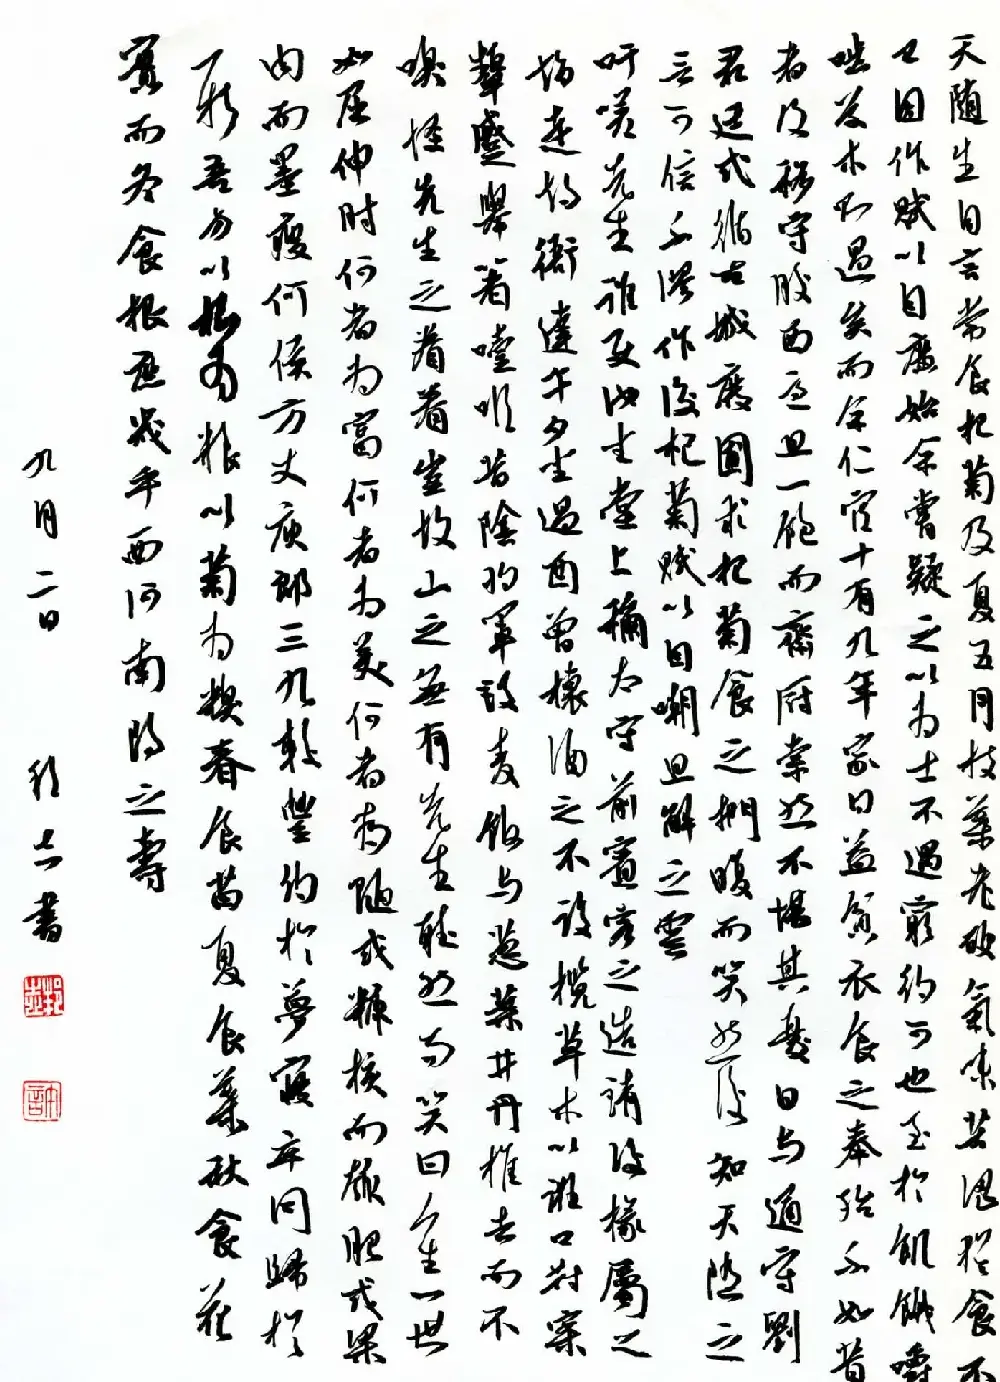 天随生自言常食杞菊及夏五月枝葉老硬氣味苦澀猶食不
已因作賦以自廣始余嘗疑之以为士不遇窮约可也至於飢餓嚼
啮草木則過矣而余仁官十有九年家日益貧衣食之奉殆不如昔
者及移守胶西意且一飽而齋厨索然不堪其憂日与通守劉
君廷式循古城廢圃求杞菊食之捫腹而笑然後知天随之
言可信不谬作後杞菊赋以自嘲且解之雲
吁嗟先生谁使汝坐堂上稱太守前賓客之造請後掾屬之
趋走朝衙達午夕坐過酉曾杯酒之不設攬草木以誑口对案
颦蹙舉箸噎呕昔陰将軍設麦飯与葱葉井丹推去而不
嗅怪先生之眷眷豈故山之無有先生聽然而笑曰人生一世
如屈伸肘何者为富何者为美何者為陋或糠核而瓠肥或梁
肉而墨瘦何侯方丈庾郎三九較豐约於夢寐卒同歸於
一朽吾方以杞为粮以菊为糗春食苗夏食葉秋食花
實而冬食根庶幾乎西河南陽之壽
九月二日 邦志書